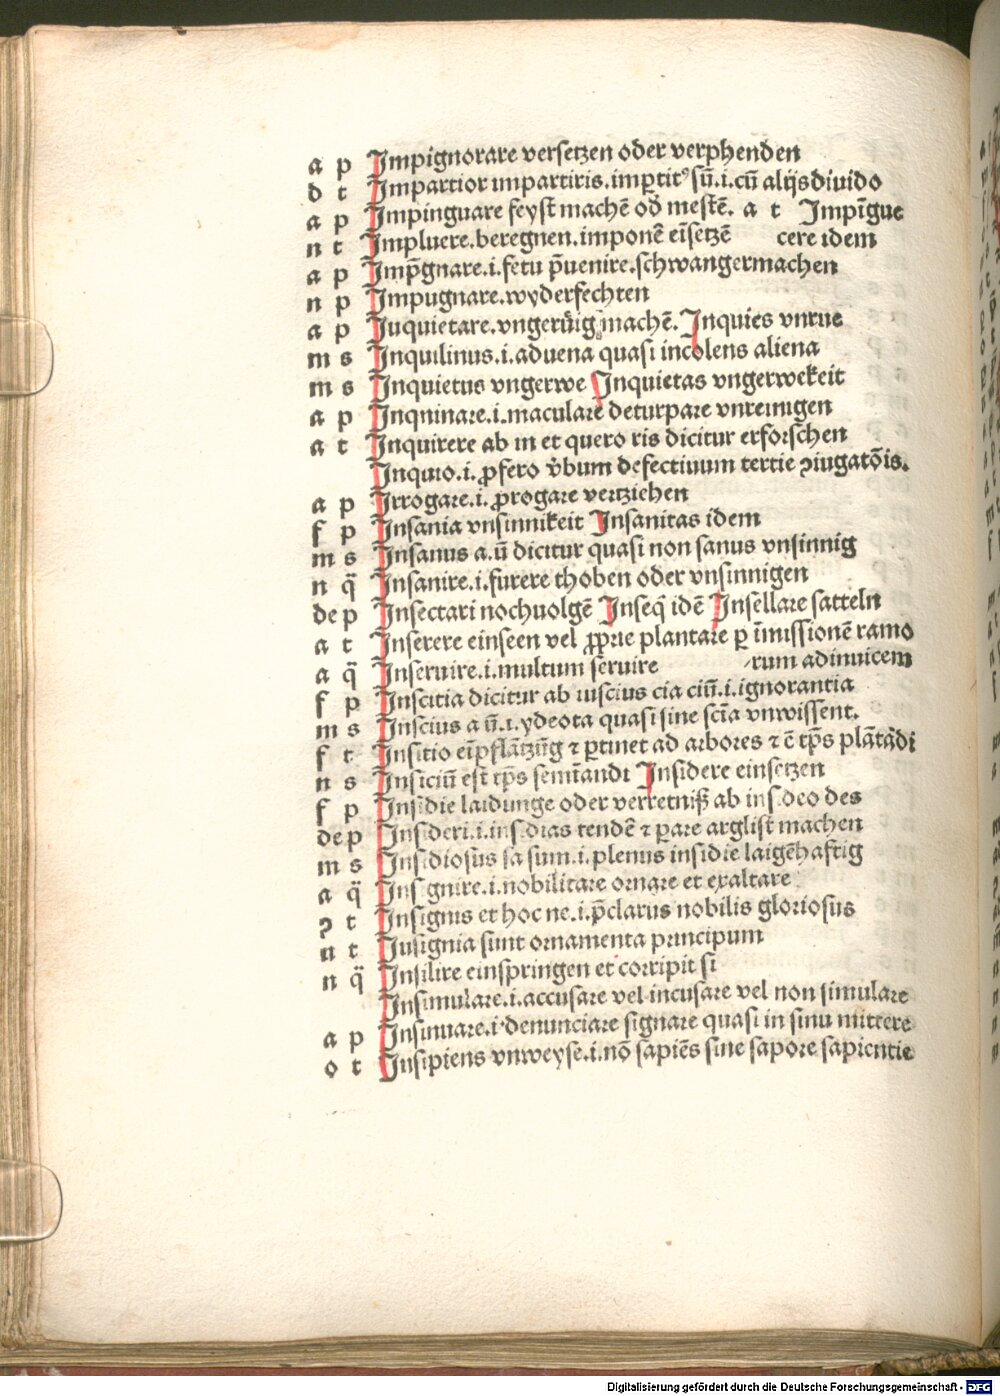 a p Impignorare versetzen oder verphenden
d t Impartior impartiris. imꝑtitꝰ sū. i. cū alijs diuido
a p Impinguare feyst machē od̄ mestē. a t Impīgue
n t Impluere. beregnen. imponē eīsetzē cere idem
a p Imp̄gnare. i. fetu p̄uenire. schwangermachen
n p Impugnare. wyderfechten
a p Iuquietare. vngerüig machē. Inquies vnrue
m s Inquilinus. i. aduena quasi incolens aliena
m s Inquietus vngerwe Inquietas vngerwekeit
a p Inqninare. i. maculare deturpare vnreinigen
a t Inquirere ab in et quero ris dicitur erforschen
Inquio. i. ꝓfero v̄bum defectiuum tertie ꝯiugatōis.
a p Irrogare. i. ꝓrogare vertziehen
f p Insania vnsinnikeit Insanitas idem
m s Insanus a. ū dicitur quasi non sanus vnsinnig
n q̄ Insanire. i. furere thoben oder vnsinnigen
de p Insectari nochuolgē Inseq̄ idē Insellare satteln
a t Inserere einseen vel ꝓprie plantare ꝑ īmissionē ramo
a q̄ Inseruire. i. multum seruire rum adinuicem
f p Inscitia dicitur ab inscius cia ciū. i. ignorantia
m s Inscius a ū. i. ydeota quasi sine scīa vnwissent.
f t Insitio eīpflātzūg ⁊ ꝑtinet ad arbores ⁊ ē tp̄s plātādi
n s Insiciū est tp̄s semīandi Insidere einsetzen
f p Insidie laidunge oder verretniß ab insideo des
de p Insideri. i. insidias tendē ⁊ ꝑare arglist machen
m s Insidiosus sa sum. i. plenus insidie laigēhaftig
a q̄ Insignire. i. nobilitare ornare et exaltare
ꝯ t Insignis et hoc ne. i. p̄clarus nobilis gloriosus
n t Iusignia sunt ornamenta principum
n q̄ Insilire einspringen et corripit si
Insimulare. i. accusare vel incusare vel non simulare
a p Insinuare. i. denunciare signare quasi in sinu mittere
o t Insipiens vnweyse. i. nō sapiēs sine sapore sapientie
Digitalisierung gefördert durch die Deutsche Forschungsgemeinschaft - DFG